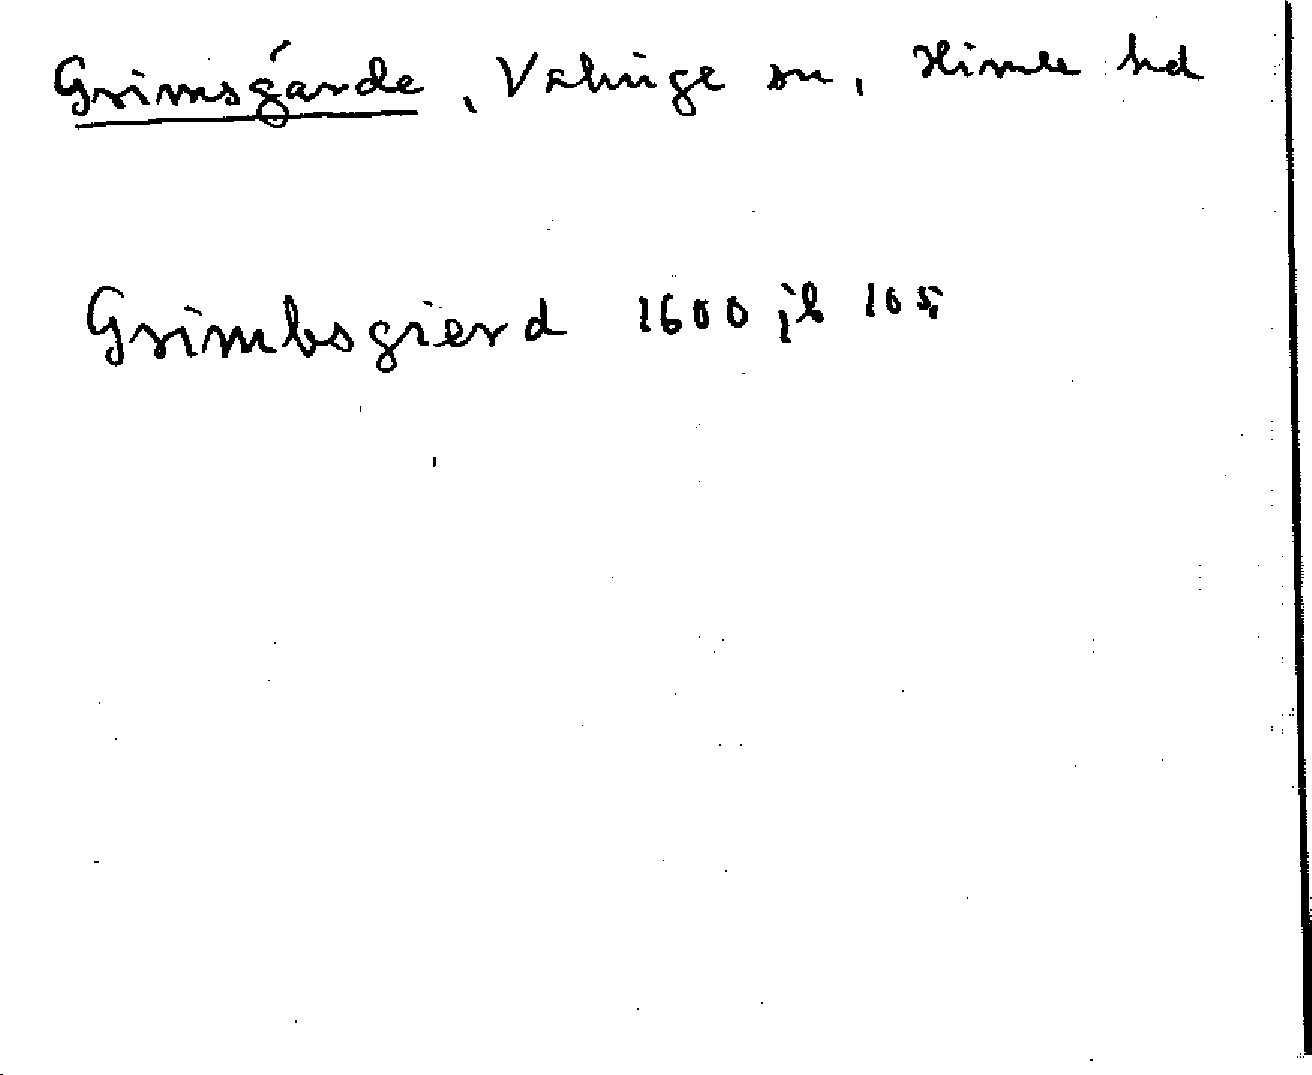 Grimsgärde, Valinge sn, Himle hd
Grimbsgierd 1600 jb 105